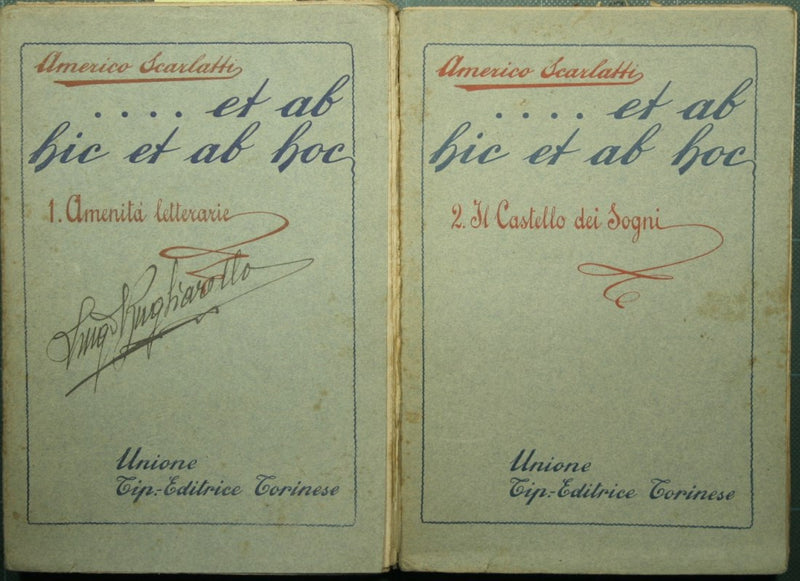 Americo Scarlatti
.... et ab
hic et ab hoc
1. Amenitá letterarie
Unione
Tip.-Editrice Torinese
Americo Scarlatti
.... et ab
hic et ab hoc
2. Il Castello dei Sogni
Unione
Tip.-Editrice Torinese